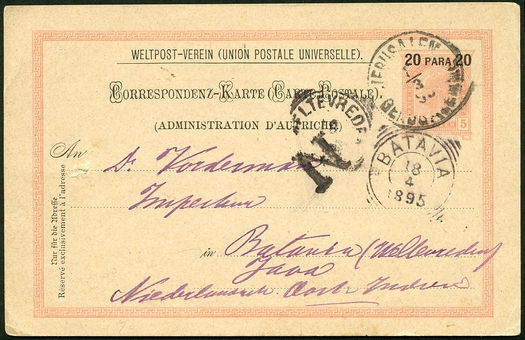 WELTPOST-VEREIN (UNION POSTALE UNIVERSELLE).
20 PARA 20
CORRESPONDENZ-KARTE (CARTE POSTALE)
(ADMINISTRATION D'AUTRICHE)
JERUSALEM
5
WELTEVREDEN
N
BATAVIA
18
4
1895
An
Dr. Vorderman
Inspecteur
in Batavia (Weltevreden)
Java
Niederländisch Ost Indien
Nur für die Adresse
Réservé exclusivement à l'adresse